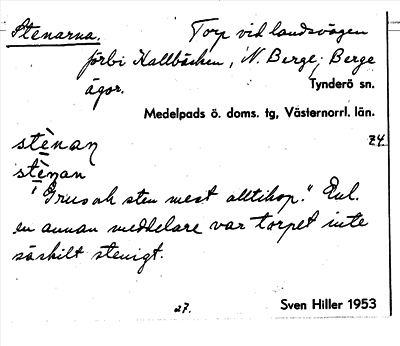 Stenarna. Torp vid landsvägen
förbi Kallbäcken, N. Berge; Berge
ägor. Tynderö sn.
Medelpads ö. doms. tg, Västernorrl. län.
stènan 24.
stènan
"Grus och sten mest alltihop." Enl.
en annan meddelare var torpet inte
särskilt stenigt.
27. Sven Hiller 1953